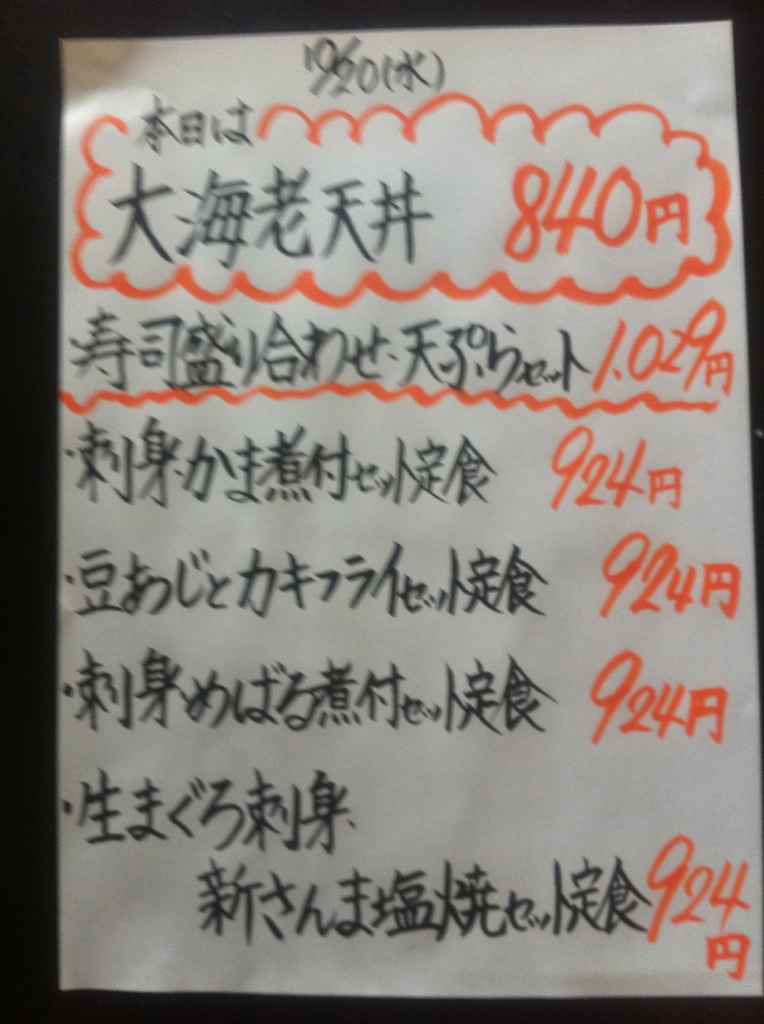 10/20(水)
本日は
大海老天丼 840円
・寿司盛り合わせ、天ぷらセット 1.029円
・刺身、かま煮付セット定食 924円
・豆あじとカキフライセット定食 924円
・刺身、めばる煮付セット定食 924円
・生まぐろ刺身、
新さんま塩焼セット定食 924円